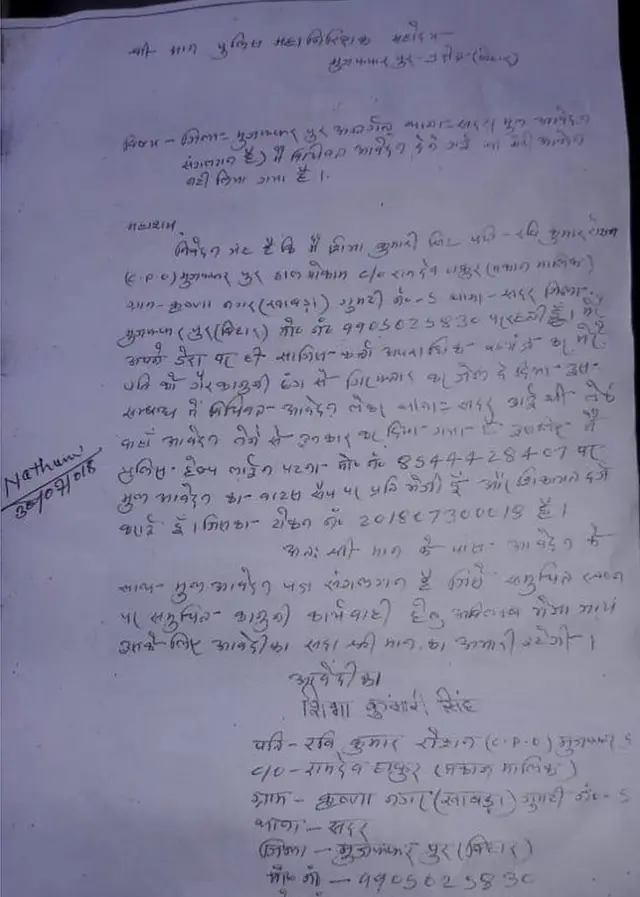 श्री मान पुलिस महानिरीक्षक महोदय
मुजफ्फर पुर (बिहार)
विषय - जिला - मुजफ्फर पुर अन्तर्गत थाना - सदर मूल आवेदन
संलग्न है) में विधिवत आवेदन देने गई तो मेरी आवेदन
नही लिया गया है।
महाशय,
निवेदन यह है कि मैं कुमारी सिंह पति - रवि कुमार रौशन
(C.P.O) मुजफ्फर पुर हाल मोकाम C/o रामदेव ठाकुर (मकान मालिक)
ग्राम - कृष्णा नगर (खबड़ा) गुमटी नं० - 5 थाना - सदर जिला -
मुजफ्फर पुर (बिहार) मो० नं० 9905025830 पर रहती हूँ। मैं
अपने डेरा पर थी साजिश कर्ता अपराधिक षडयंत्र कर मेरे
पति को गैरकानूनी ढंग से गिरफ्तार कर जेल दे दिया - उस
सम्बन्ध में विधिवत - आवेदन लेकर थाना - सदर गई थी लेकिन
वहाँ आवेदन लेने से इनकार कर दिया गया है इसलिए मैं
पुलिस - हेल्प लाईन पटना - मो० नं० 8544428407 पर
मूल आवेदन का - वाट्स ऐप पर प्रति भेजी हूँ और शिकायत दर्ज
कराई हूँ। जिसका - टोकन नं० 201807300018 है।
अतः श्री मान के पास - आवेदन के
साथ - मूल आवेदन पत्र संलगन है जिसे समुचित स्थान
पर समुचित - कानूनी कार्यवाही हेतु अविलम्ब भेजा जाय
इसके लिए आवेदीका सदा श्री मान का आभारी रहेगी।
Nathuni
30/07/018
आवेदीका
कुमारी सिंह
पति - रवि कुमार रौशन (C.P.O) मुजफ्फर
C/o - रामदेव ठाकुर (मकान मालिक)
ग्राम - कृष्णा नगर (खबड़ा) गुमटी नं० - 5
थाना - सदर
जिला - मुजफ्फर पुर (बिहार)
मो० नं० - 9905025830